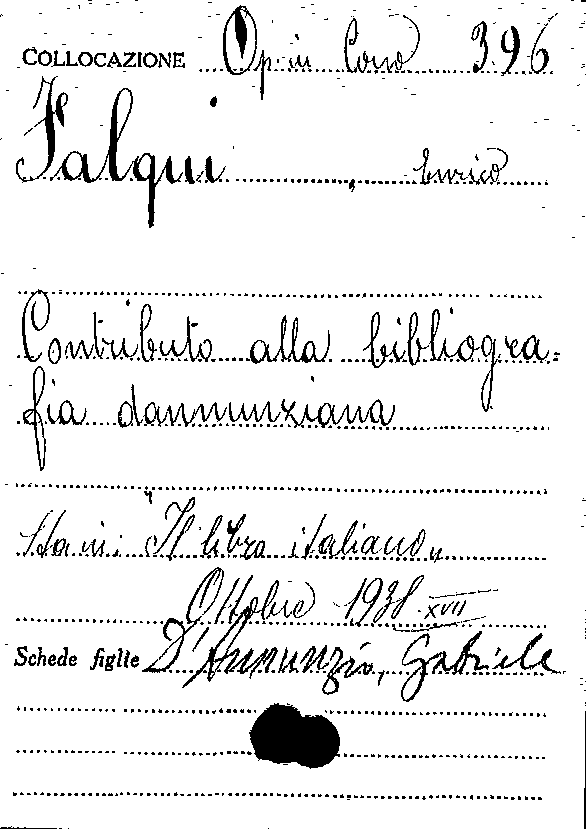 COLLOCAZIONE Op. in Corso 396
Falqui, Enrico
Contributo alla bibliogra=
fia dannunziana
Sta in: "Il libro italiano„
Ottobre 1938 XVII
Schede figlie D'Annunzio, Gabriele